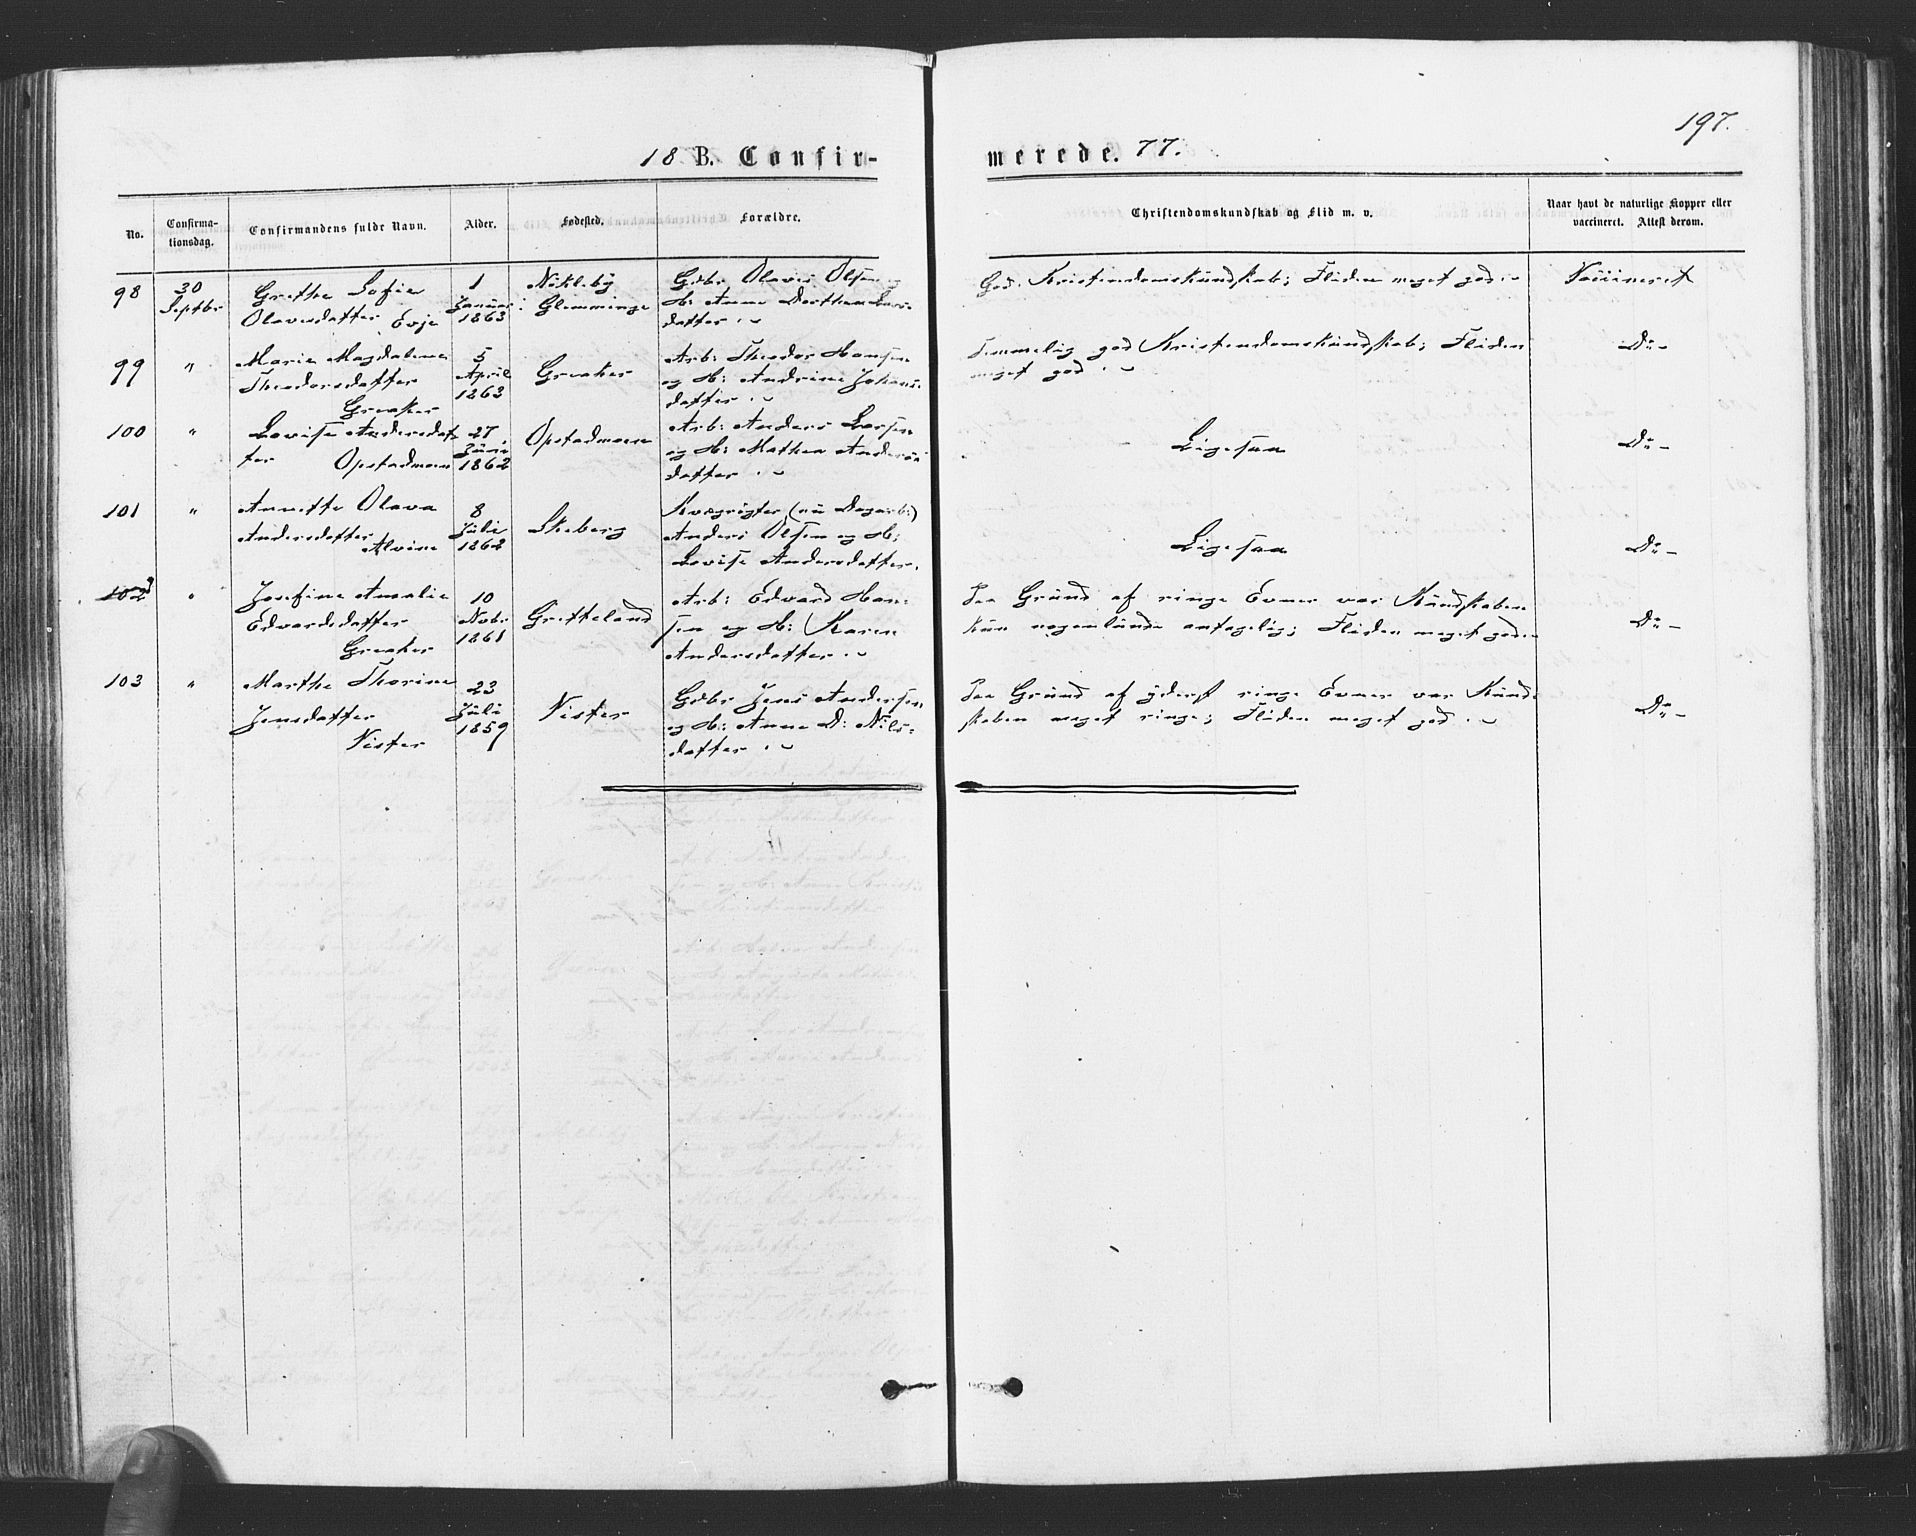 197.
18 B. Confir- merede. 77.
No.
Confirma-
tionsdag.
Confirmandens fulde Navn.
Alder.
Fødested.
Forældre.
Christendomskundskab og Flid m. v.
Naar havt de naturlige Kopper eller
vaccineret. Attest derom.
98
30
Septbr
Grethe Sofie
Olavesdatter Evje
1
Januar
1863
Nökleby
Glemminge
Gdbr Olaves Olsen og
H: Anne Dorthea Lars-
datter.
God Kristendomskundskab; Fliden meget god.
Vaccineret
99
"
Marie Magdalene
Theodorsdatter
Greaker
5
April
1863
Greaker
Arb: Theodor Hansen
og H: Andrine Johans-
datter.
Temmelig god Kristendomskundskab; Fliden
meget god.
Do -
100
"
Lovise Andersdat
ter Opstadmoen
27
Juni
1862
Opstadmoen
Arb: Anders Larsen
og H: Mathea Anders-
datter.
Ligesaa
Do -
101
"
Annette Olava
Andersdatter
Alvine
8
Juli
1862
Skeberg
Kvægrögter (nu Dagarb:)
Anders Olsen og H:
Lovise Andersdatter.
Ligesaa
Do -
102
"
Josefine Amalie
Edvardsdatter
Greaker
10
Novbr
1861
Gretteland
Arb: Edvard Han-
sen og H: Karen
Andersdatter.
Paa Grund af ringe Evner var Kundskaben
kun nogenlunde antagelig; Fliden meget god.
Do -
103
"
Marthe Thorine
Jensdatter
Nister
23
Juli
1859
Nister
Gdbr Jens Andersen
og H: Anne D: Nils-
datter.
Paa Grund af yderst ringe Evner var Kund-
skaben meget ringe; Fliden meget god.
Do -